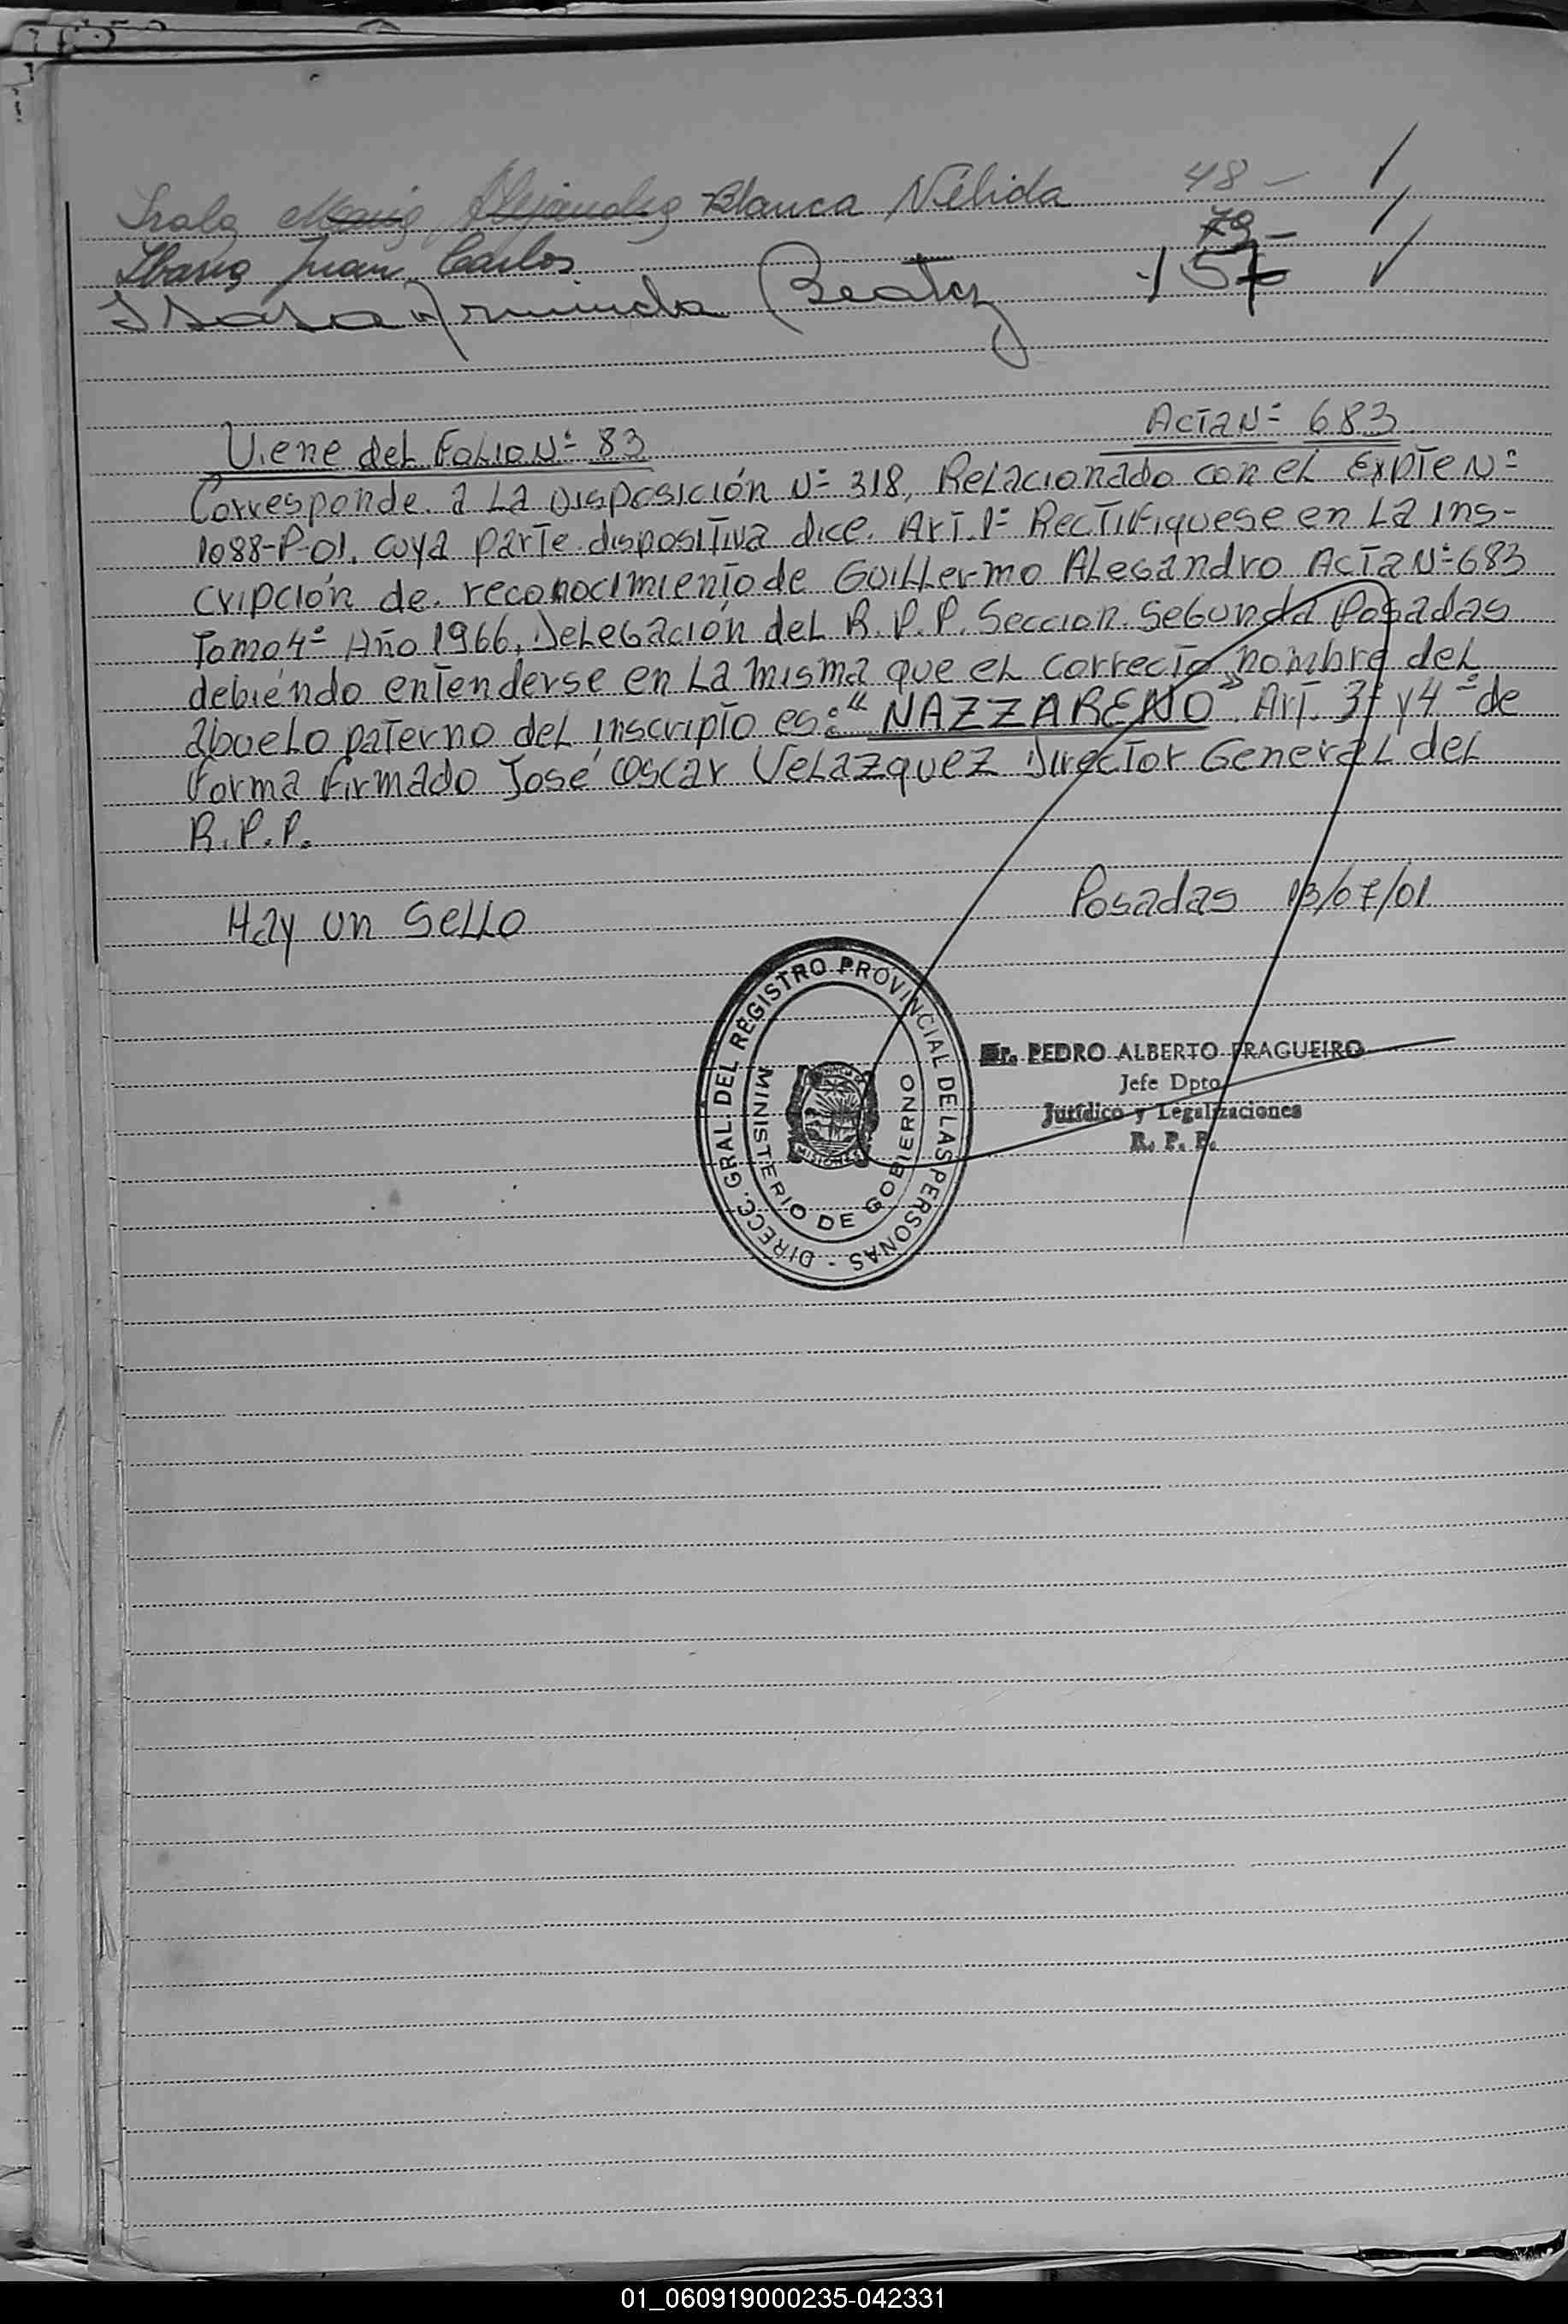 Irala ~~Maria Alejandra~~ Blanca Nélida 48 -
Ibarra Juan Carlos 79 -
Arminda Beatriz 157
Viene del Folio Nº 83 Acta Nº 683
Corresponde a La Disposición Nº 318, Relacionado con el Expte Nº
1088-P-01. cuya parte dispositiva dice. Art. 1º Rectifiquese en La Ins-
cripción de reconocimiento de Guillermo Alegandro Acta Nº 683
Tomo 4º Año 1966, Delegación del R.P.P. Seccion Segunda Posadas
debiéndo entenderse en La misma que el correcto nombre del
abuelo paterno del inscripto es: "NAZZARENO". Art. 3º y 4º de
forma Firmado José Oscar Velazquez Director General del
R.P.P.
Hay un Sello Posadas 13/07/01
DIRECC. GRAL. DEL REGISTRO PROVINCIAL DE LAS PERSONAS -
MINISTERIO DE GOBIERNO
MISIONES
Dr. PEDRO ALBERTO FRAGUEIRO
Jefe Dpto
Jurídico y Legalizaciones
R. P. P.
01_060919000235-042331